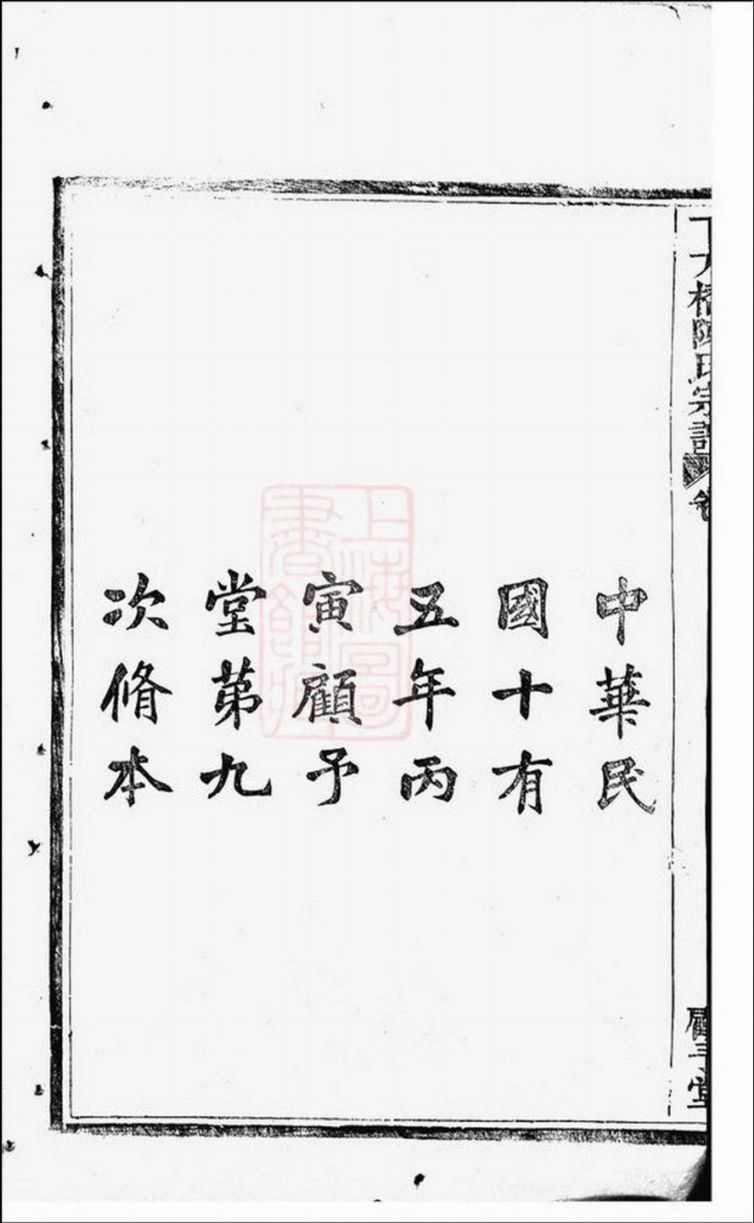 中華民
國十有
五年丙
寅顧予
堂第九
次脩本
橋陳氏宗譜 卷
顧予堂
上海圖書館藏